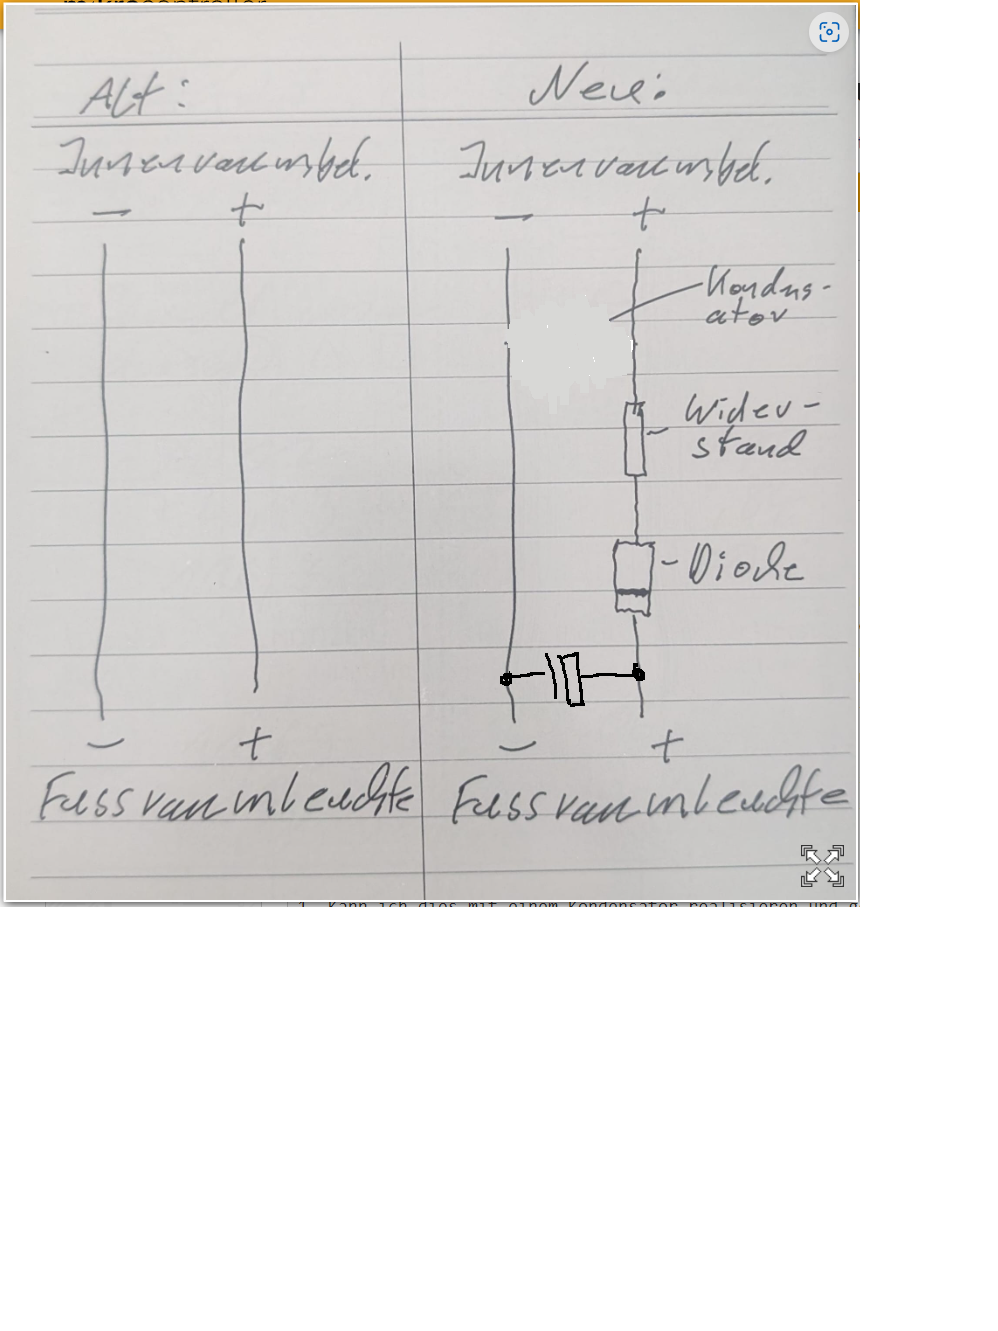 Alt:
Innenraumbel.
− +
− +
Fussraumleuchte
Neu:
Innenraumbel.
− +
Kondns-
ator
Wider-
stand
Diode
− +
Fussraumleuchte
1. Kann ich dies mit einem Kondensator realisieren und g